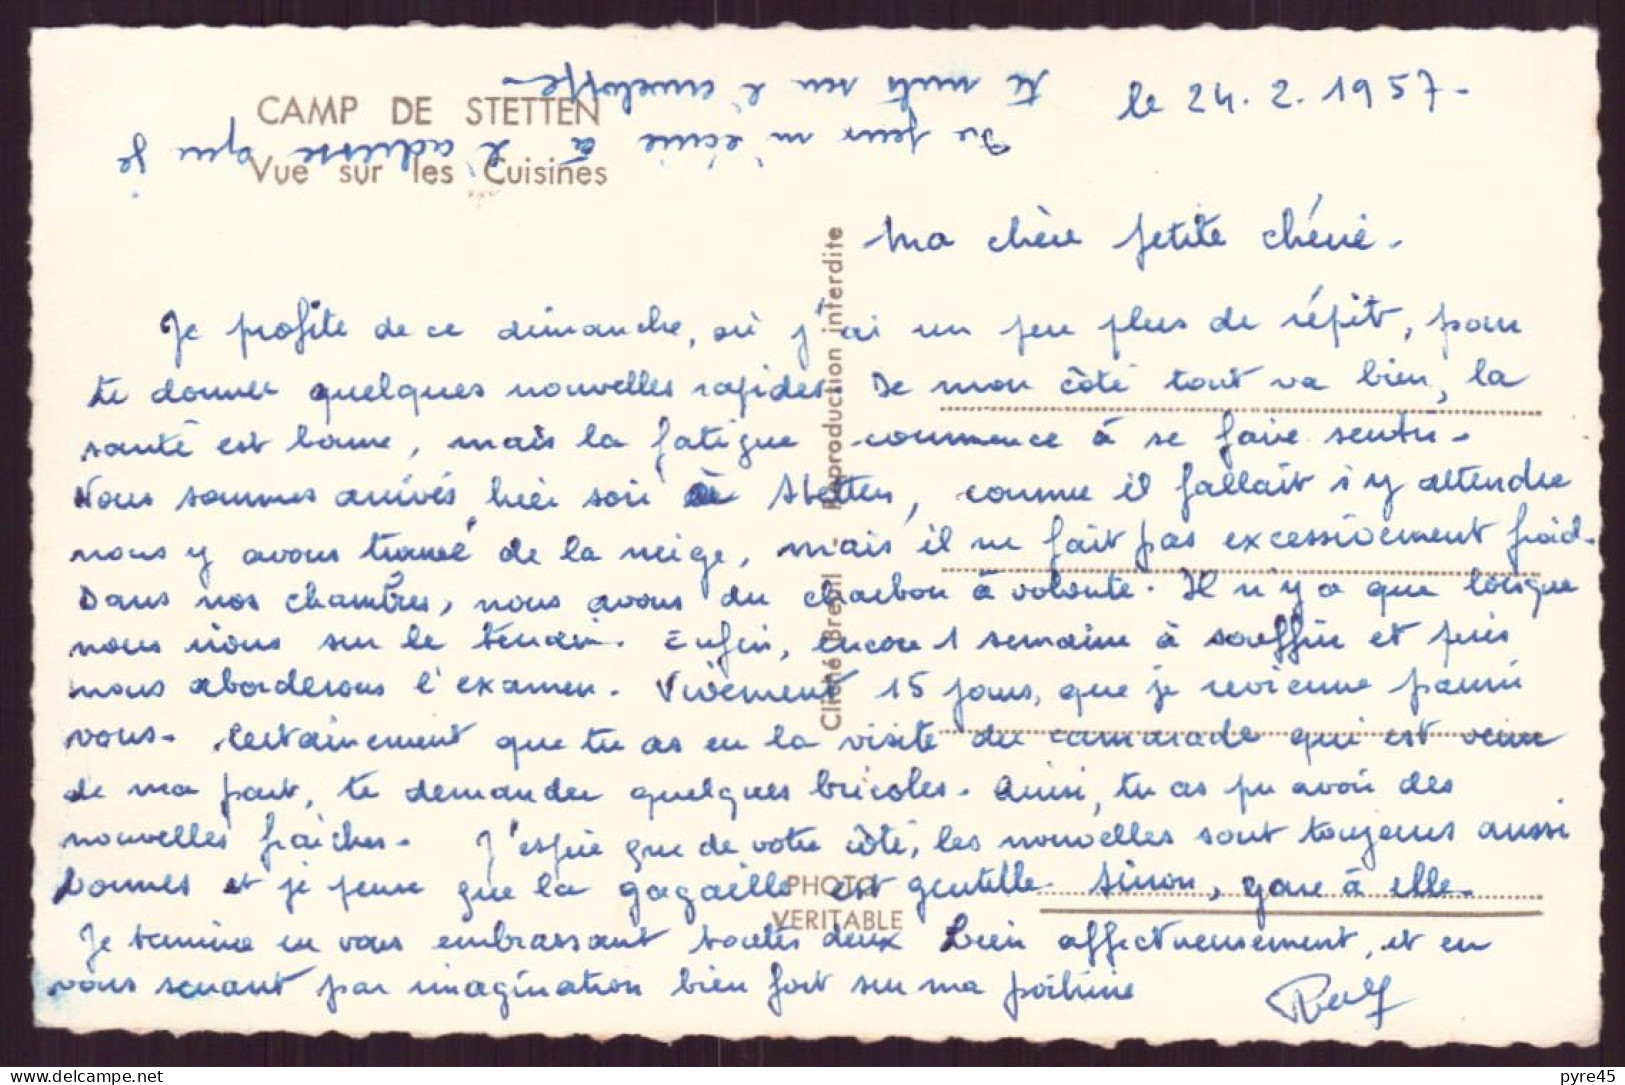 CAMP DE STETTEN
Vue sur les Cuisines
le 24.2.1957-
Tu peux m'écrire à l'adresse que je
te mets sur l'enveloppe-
Ma chère petite chérie.
Je profite de ce dimanche, où j'ai un peu plus de répit, pour
te donner quelques nouvelles rapides. De mon côté tout va bien, la
santé est bonne, mais la fatigue commence à se faire sentir.
Nous sommes arrivés hier soir à Stetten, comme il fallait s'y attendre
nous y avons trouvé de la neige, mais il ne fait pas excessivement froid.
Dans nos chambres, nous avons du charbon à volonté. Il n'y a que lorsque
nous irons sur le terrain. Enfin, encore 1 semaine à souffrir et puis
nous aborderons l'examen. Vivement 15 jours, que je revienne parmi
vous. Certainement que tu as eu la visite du camarade qui est venu
de ma part, te demander quelques bricoles. Ainsi, tu as pu avoir des
nouvelles fraîches. J'espère que de votre côté, les nouvelles sont toujours aussi
bonnes et je pense que la gagaille est gentille. Sinon, gare à elle.
Je termine en vous embrassant toutes deux bien affectueusement, et en
vous serrant par imagination bien fort sur ma poitrine
Cliché Breuil - Reproduction interdite
PHOTO
VERITABLE
pyre45